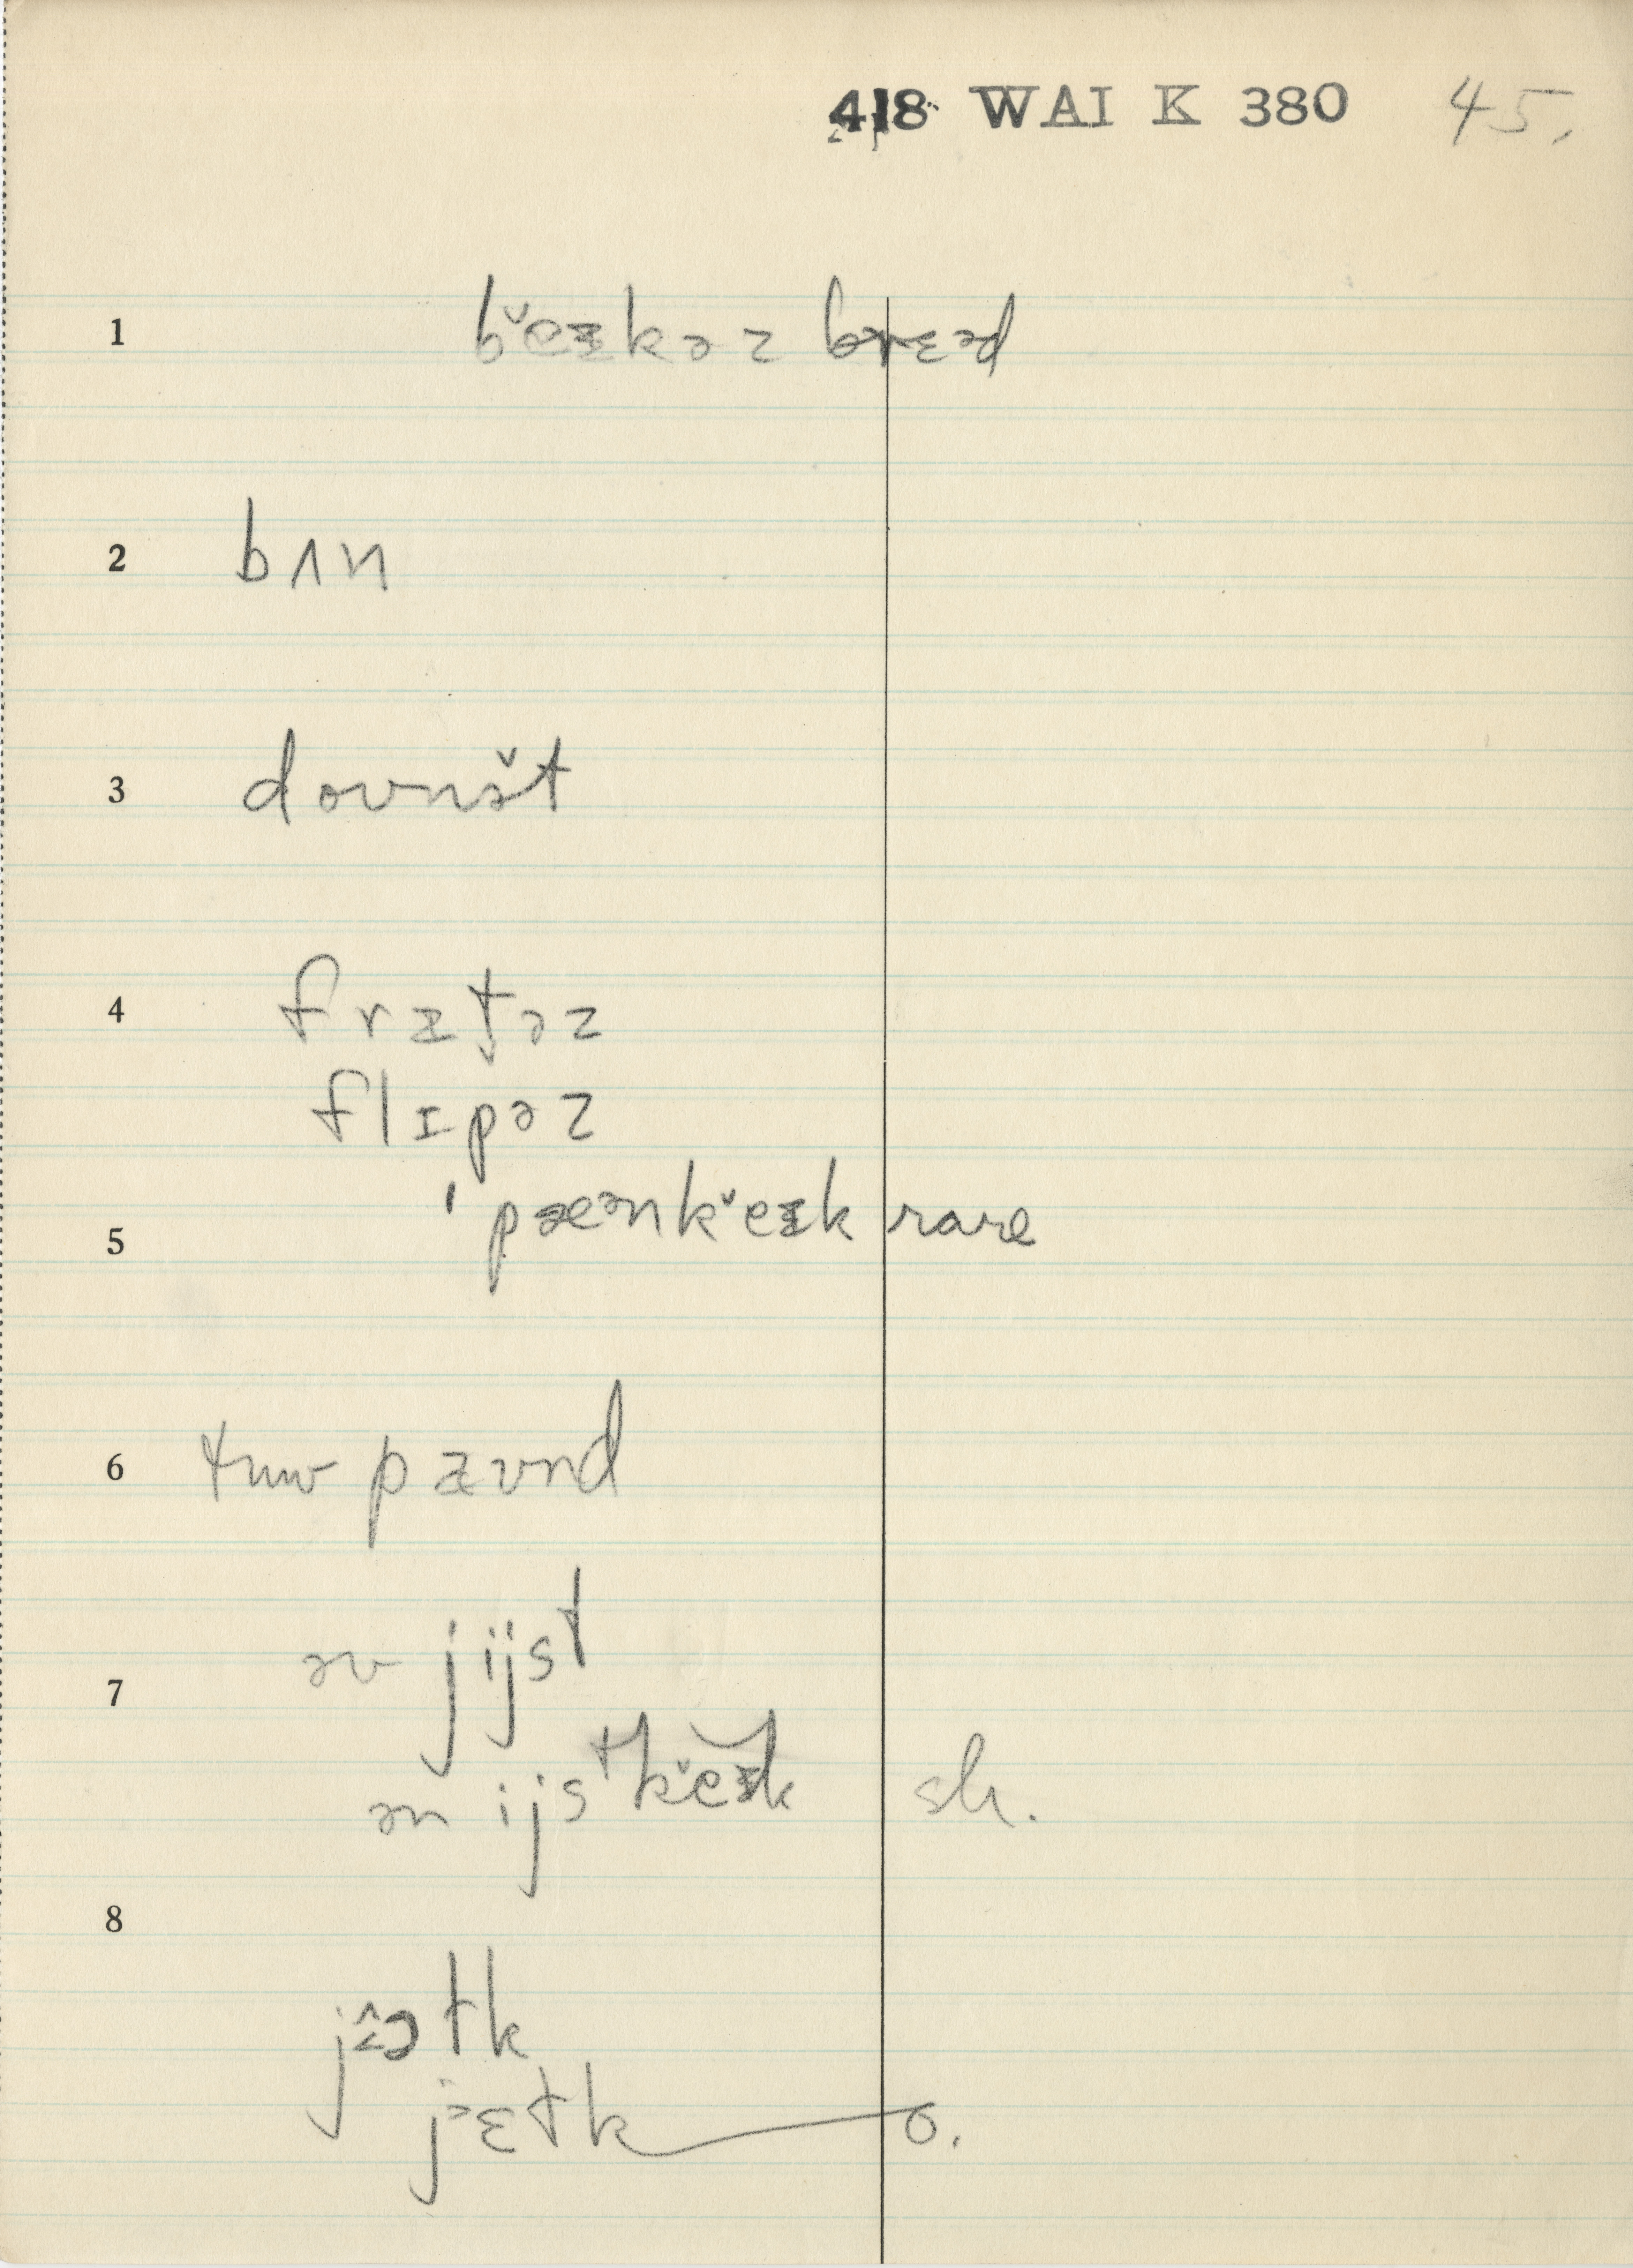 418 WAI K 380 45.
1 b̌eɪkəz brɛəd
2 bʌn
3 dounət
4 frɪt̬əz
flɪpəz
5 ˈpæənǩeɪk rare
6 pæʊnd
7 əv jijst
ən ijstǩeɪk sh.
8
jɛtk o.